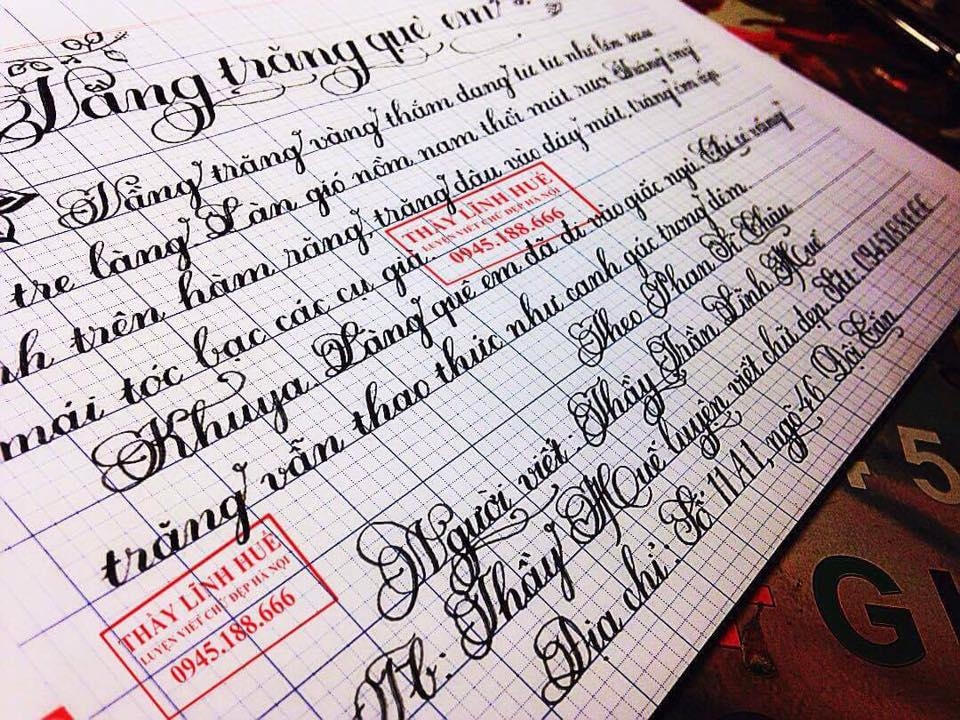 Vầng trăng quê em
Vầng trăng vàng thắm đang từ từ nhô lên sau
tre làng. Làn gió nồm nam thổi mát rượi
trên hàm răng, trăng đậu vào đáy mắt, trăng ôm ấp
mái tóc bạc các cụ già
THẦY LĨNH HUẾ
LUYỆN VIẾT CHỮ ĐẸP HÀ NỘI
0945.188.666
Khuya. Làng quê em đã đi vào giấc ngủ. Chỉ có vầng
trăng vẫn thao thức như canh gác trong đêm.
Theo Phan Sĩ Châu
Người viết: Thầy Trần Lĩnh Huế
Thầy Huế luyện viết chữ đẹp
Địa chỉ: Số 11A1, ngõ 46 Đội Cấn
THẦY LĨNH HUẾ
LUYỆN VIẾT CHỮ ĐẸP HÀ NỘI
0945.188.666
5
GI